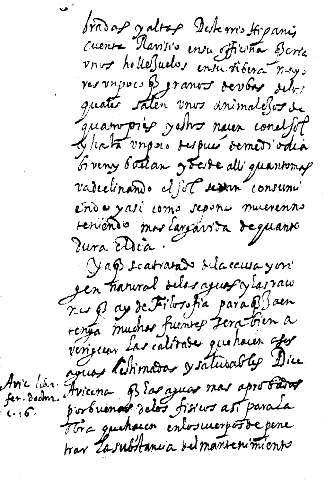 bradas y altas Desterro Hipanis
cuenta Ravisio en su officina q̃ cria
unos hollejuelos en su ribera mayo
res un poco q̃ granos de ubas de los
quales salen unos animalejos de
quatro pies y estos nacen con el sol
y hasta un poco despues de medio dia
biven y bailan y desde alli quanto mas
va declinando el sol se van consumi
endo y asi como se pone mueren no
teniendo mas larga vida de quanto
dura el dia.
Ya q̃ se a tratado de la causa y ori
gen natural de las aguas y las raço
nes q̃ ay de Filosofia para q̃ Jaen
tenga muchas fuentes sera bien a
veriguar las calidades que hacen a las
aguas estimadas y saludables Dice
Avicena q̃ las aguas mas aprobadas
por buenas de los fisicos asi para la
obra que hacen en los cuerpos de pene
trar la substancia del mantenimiento
Avic. libr.
c. 16.